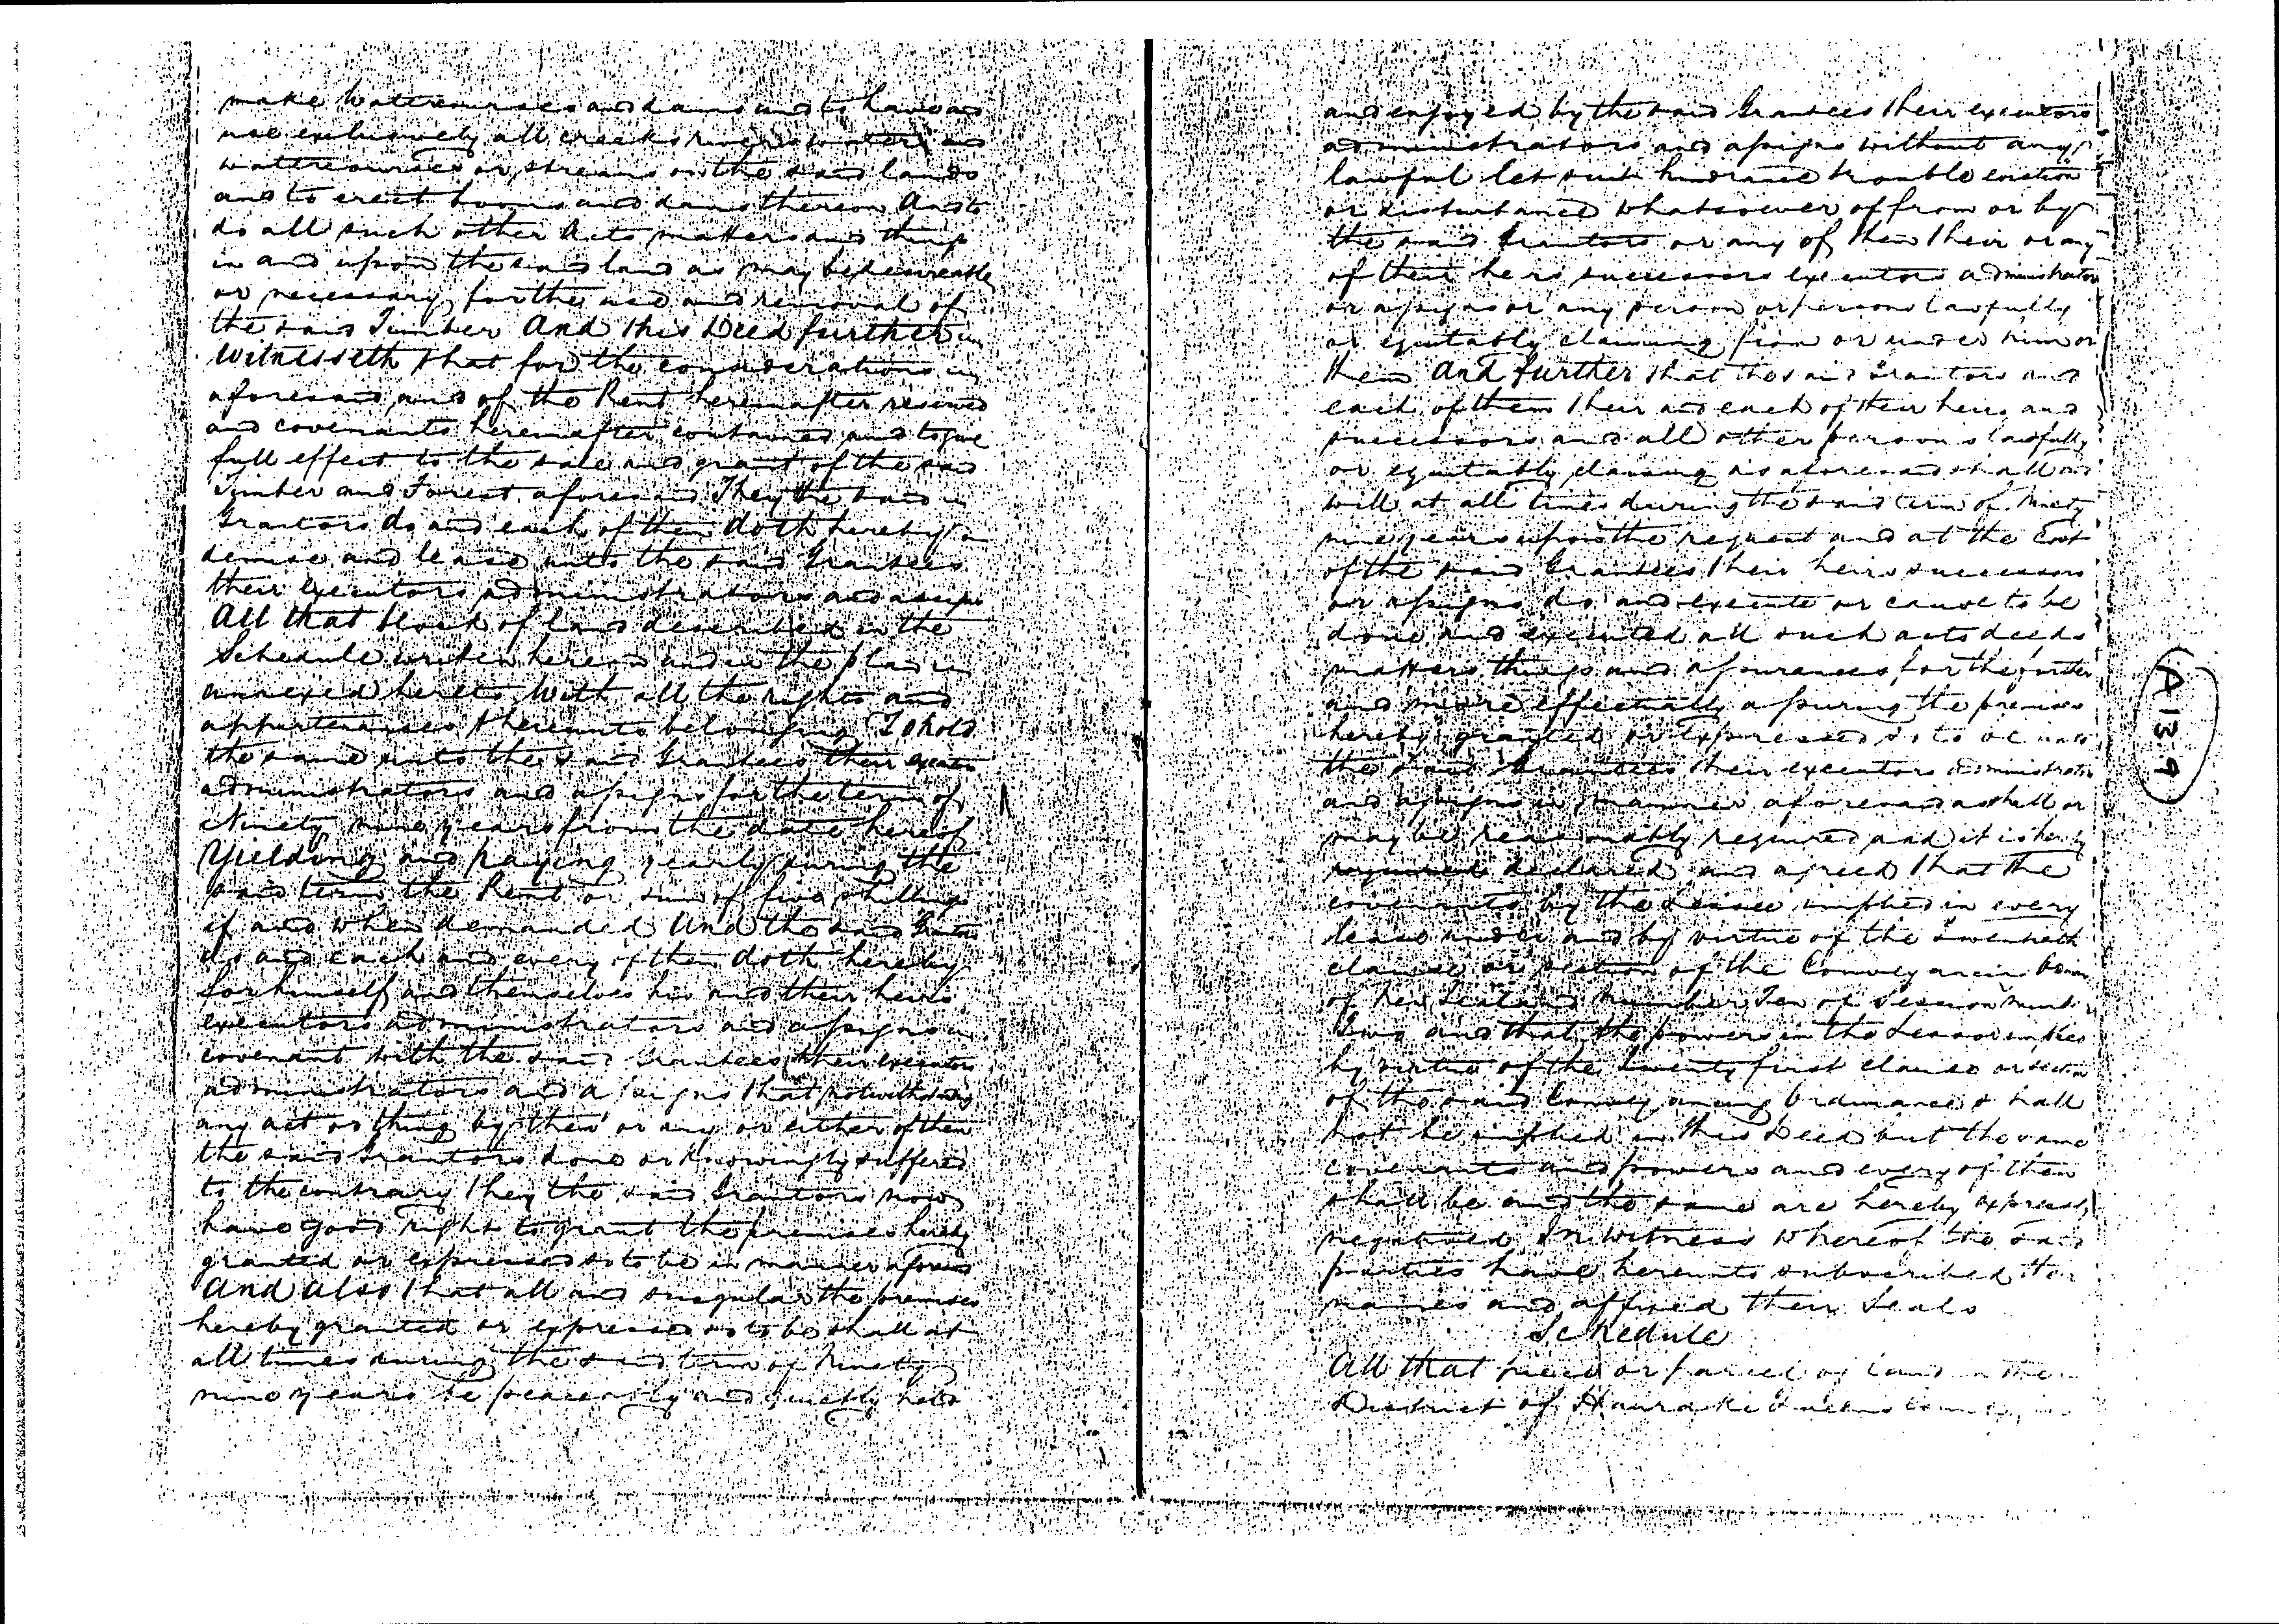 make watercourses and dams and to have and
use exclusively all creeks rivers water and
watercourses or streams on the said lands
and to erect booms and dams thereon And to
do all such other Acts matters and things
in and upon the said land as may be desireable
or necessary for the use and removal of
the said Timber And this Deed further
Witnesseth that for the considerations
aforesaid and of the Rent hereinafter reserved
and covenants hereinafter contained and to give
full effect to the sale and grant of the said
Timber and Forest aforesaid They the said
Grantors do and each of them doth hereby
demise and lease unto the said Grantees
their Executors administrators and assigns
All that block of land described in the
Schedule written hereunder in the plan
annexed hereto With all the rights and
appurtenances thereunto belonging To hold
the same unto the said Grantees their
administrators and assigns for the term of
Ninety nine years from the date hereof
Yielding and paying yearly during the
said term the Rent or sum of five shillings
if and when demanded And the said
do and each and every of them doth hereby
for himself and themselves his and their heirs
executors administrators and assigns
covenant with the said Grantees their executors
administrators and assigns that notwithstanding
any act or thing by them or any or either of them
the said Grantors done or knowingly suffered
to the contrary they the said Grantors now
have good right to grant the premises hereby
granted or expressed so to be in manner aforesaid
And also that all and singular the premises
hereby granted or expressed so to be shall at
all times during the said term of Ninety
nine years be peaceably and quietly held
and enjoyed by the said Grantees their executors
administrators and assigns without any
lawful let suit hindrance trouble eviction
or disturbance whatsoever of from or by
the said Grantors or any of them their or any
of their heirs successors executors administrators
or assigns or any person or persons lawfully
or equitably claiming from or under him or
them And further that the said Grantors and
each of them their and each of their heirs and
successors and all other persons lawfully
or equitably claiming as aforesaid shall and
will at all times during the said term of Ninety
nine years upon the request and at the cost
of the said Grantees their heirs successors
or assigns do and execute or cause to be
done and executed all such acts deeds
matters things and assurances for the further
and more effectually assuring the premises
hereby granted or expressed so to be unto
the said Grantees their executors administrators
and assigns in manner aforesaid as shall or
may be reasonably required and it is hereby
declared and agreed that the
covenants by the Lessee implied in every
lease under and by virtue of the twentieth
clause or section of the Conveyancing
of New Zealand Number Ten of Session
Two and that the powers in the Lessor implied
by virtue of the twenty first clause or section
of the said Conveyancing Ordinance shall
not be implied in this Deed but the same
covenants and powers and every of them
shall be and the same are hereby expressly
negatived In witness whereof the said
parties have hereunto subscribed their
names and affixed their Seals
Schedule
All that piece or parcel of land in the
District of Hauraki
A 13-9